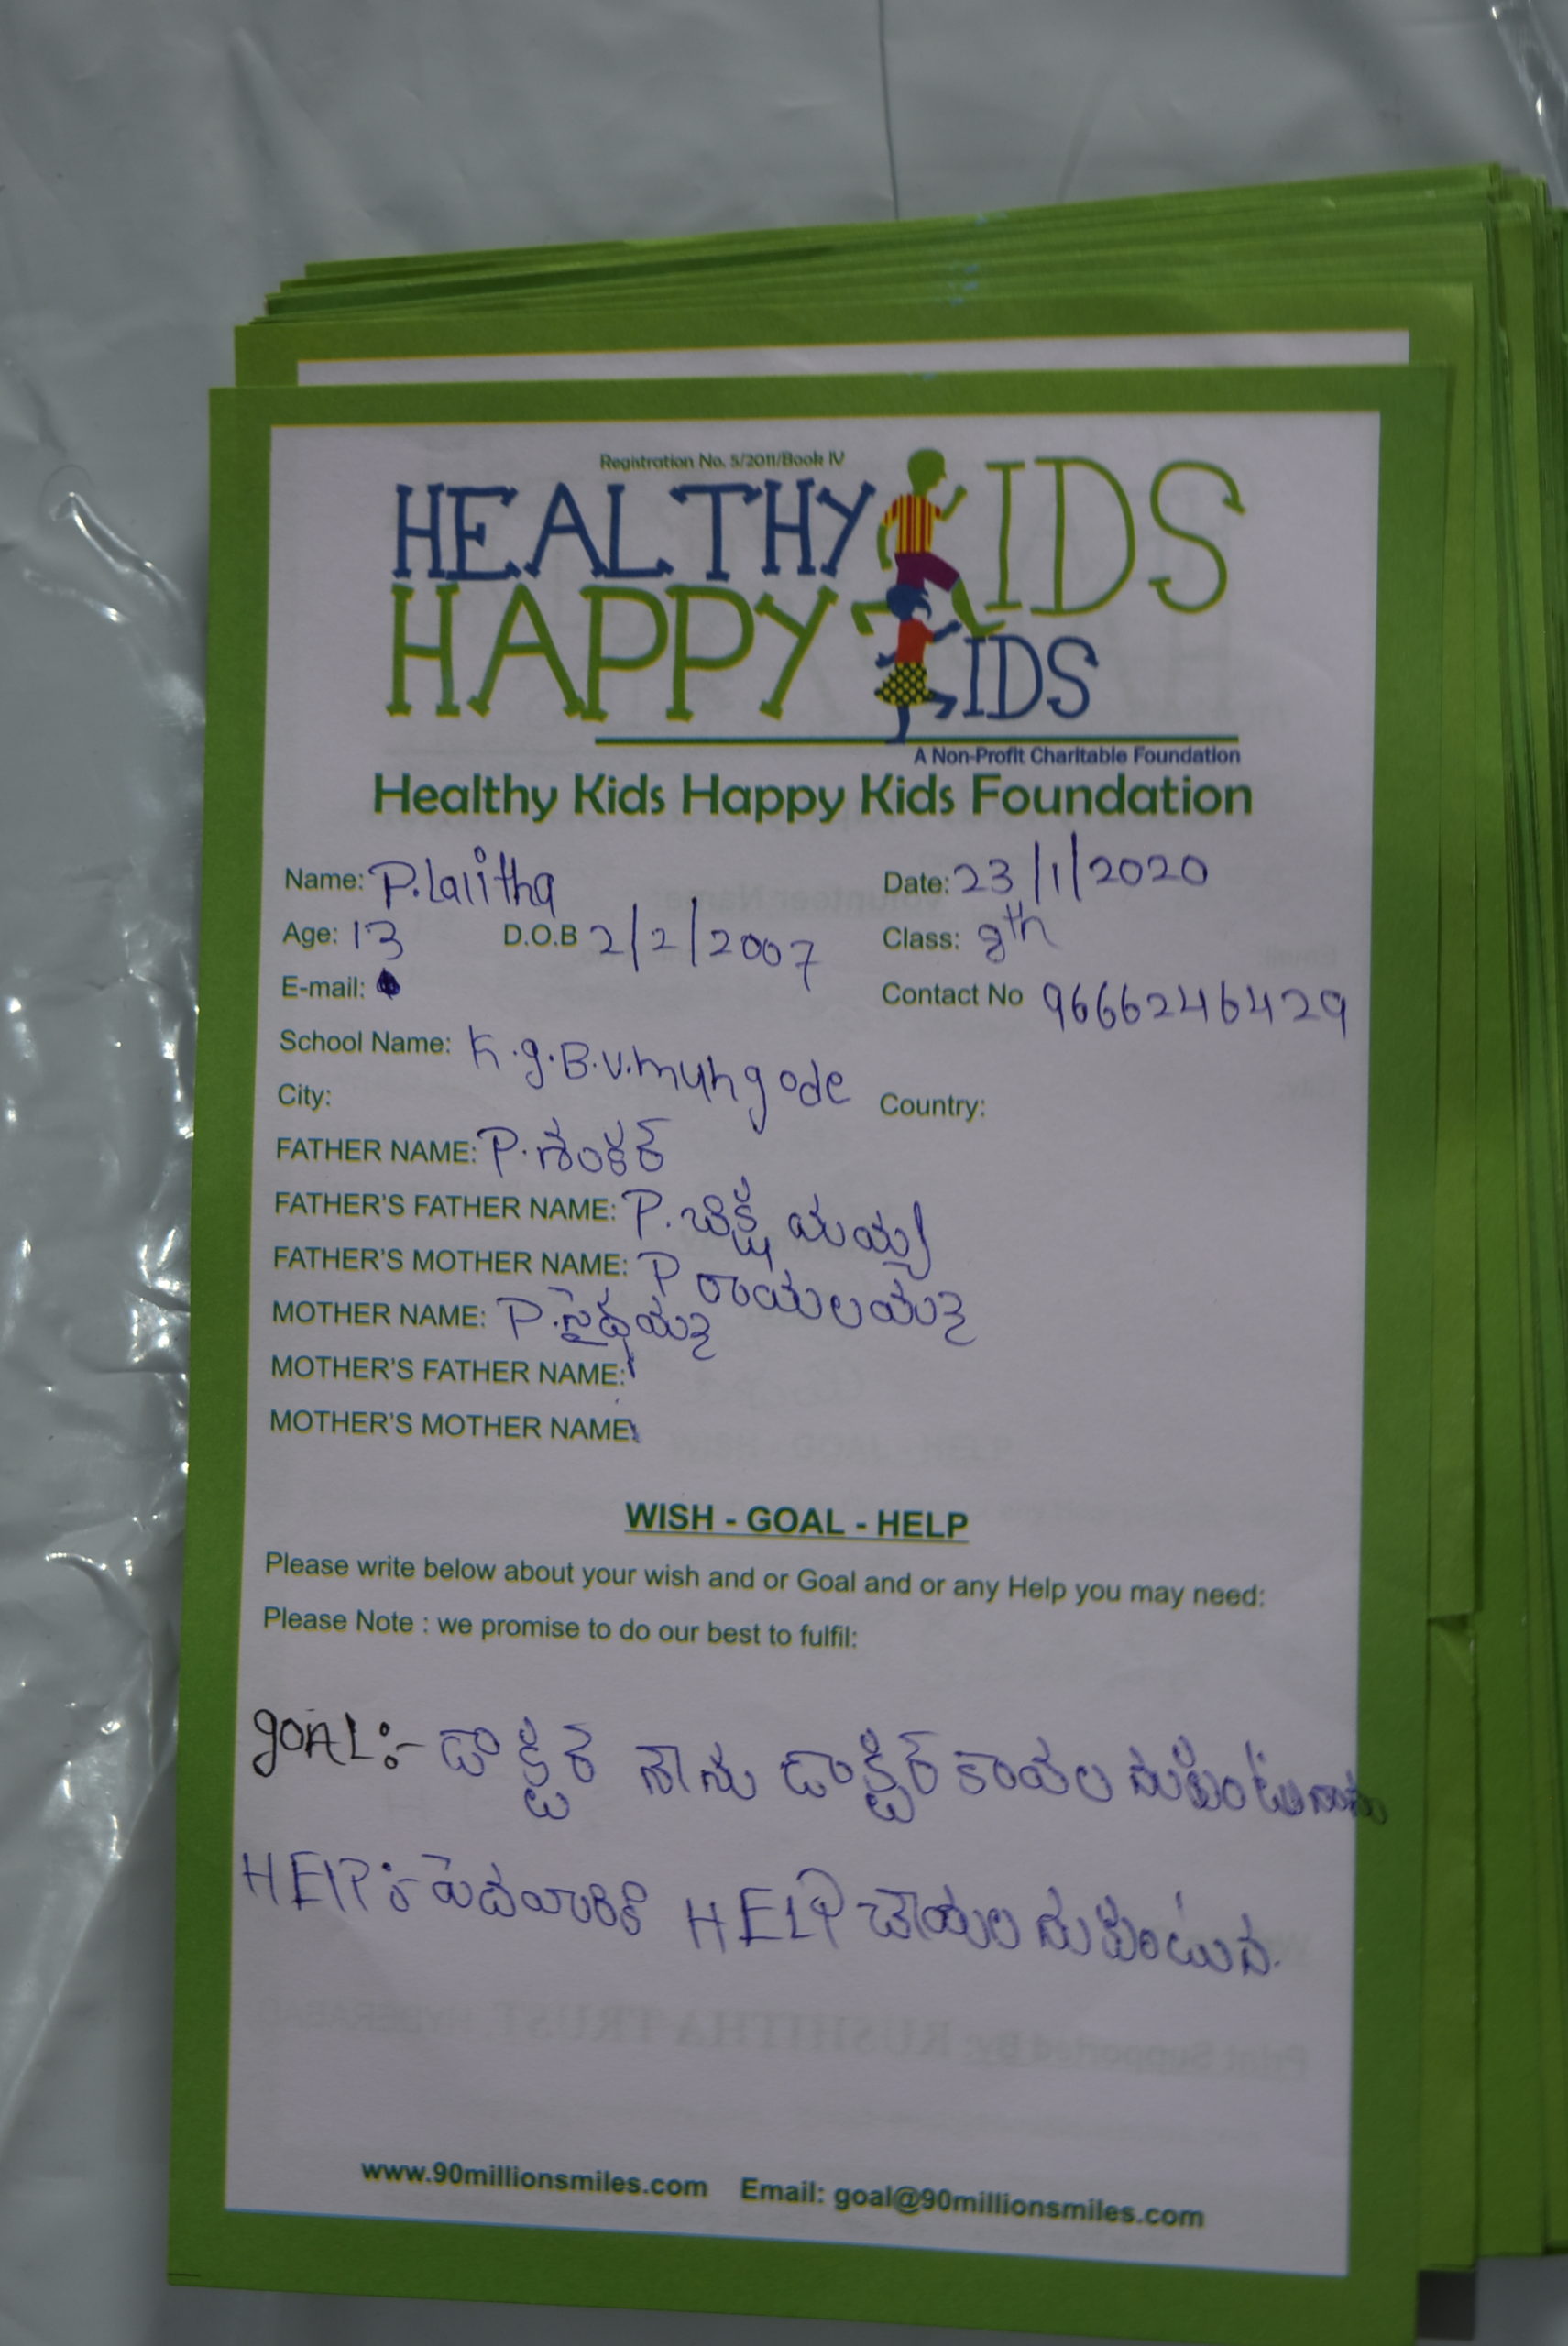 Registration No. 5/2011/Book IV
HEALTHY KIDS
HAPPY KIDS
A Non-Profit Charitable Foundation
Healthy Kids Happy Kids Foundation
Name: P.Lalitha Date: 23/1/2020
Age: 13 D.O.B 2/2/2007 Class: 8th
E-mail: Contact No 9666246429
School Name: K.g.B.V.mungode
City: Country:
FATHER NAME: P.శంకర్
FATHER'S FATHER NAME: P.
FATHER'S MOTHER NAME: P రాయలమ్మ
MOTHER NAME: P.సైదమ్మ
MOTHER'S FATHER NAME:
MOTHER'S MOTHER NAME:
WISH - GOAL - HELP
Please write below about your wish and or Goal and or any Help you may need:
Please Note : we promise to do our best to fulfil:
GOAL:- డాక్టర్ నాను డాక్టర్ కాయల
HELP:- పెదవారికి HELP చాయల
www.90millionsmiles.com Email: goal@90millionsmiles.com